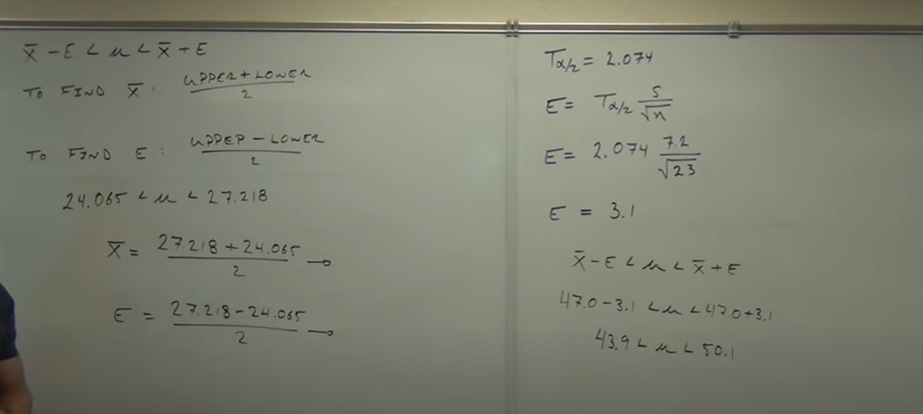 x̄ - E < μ < x̄ + E
TO FIND x̄: UPPER + LOWER / 2
TO FIND E: UPPER - LOWER / 2
24.065 < μ < 27.218
x̄ = 27.218 + 24.065 / 2 →
E = 27.218 - 24.065 / 2 →
Tα/2 = 2.074
E = Tα/2 s/√n
E = 2.074 7.2/√23
E = 3.1
x̄ - E < μ < x̄ + E
47.0 - 3.1 < μ < 47.0 + 3.1
43.9 < μ < 50.1